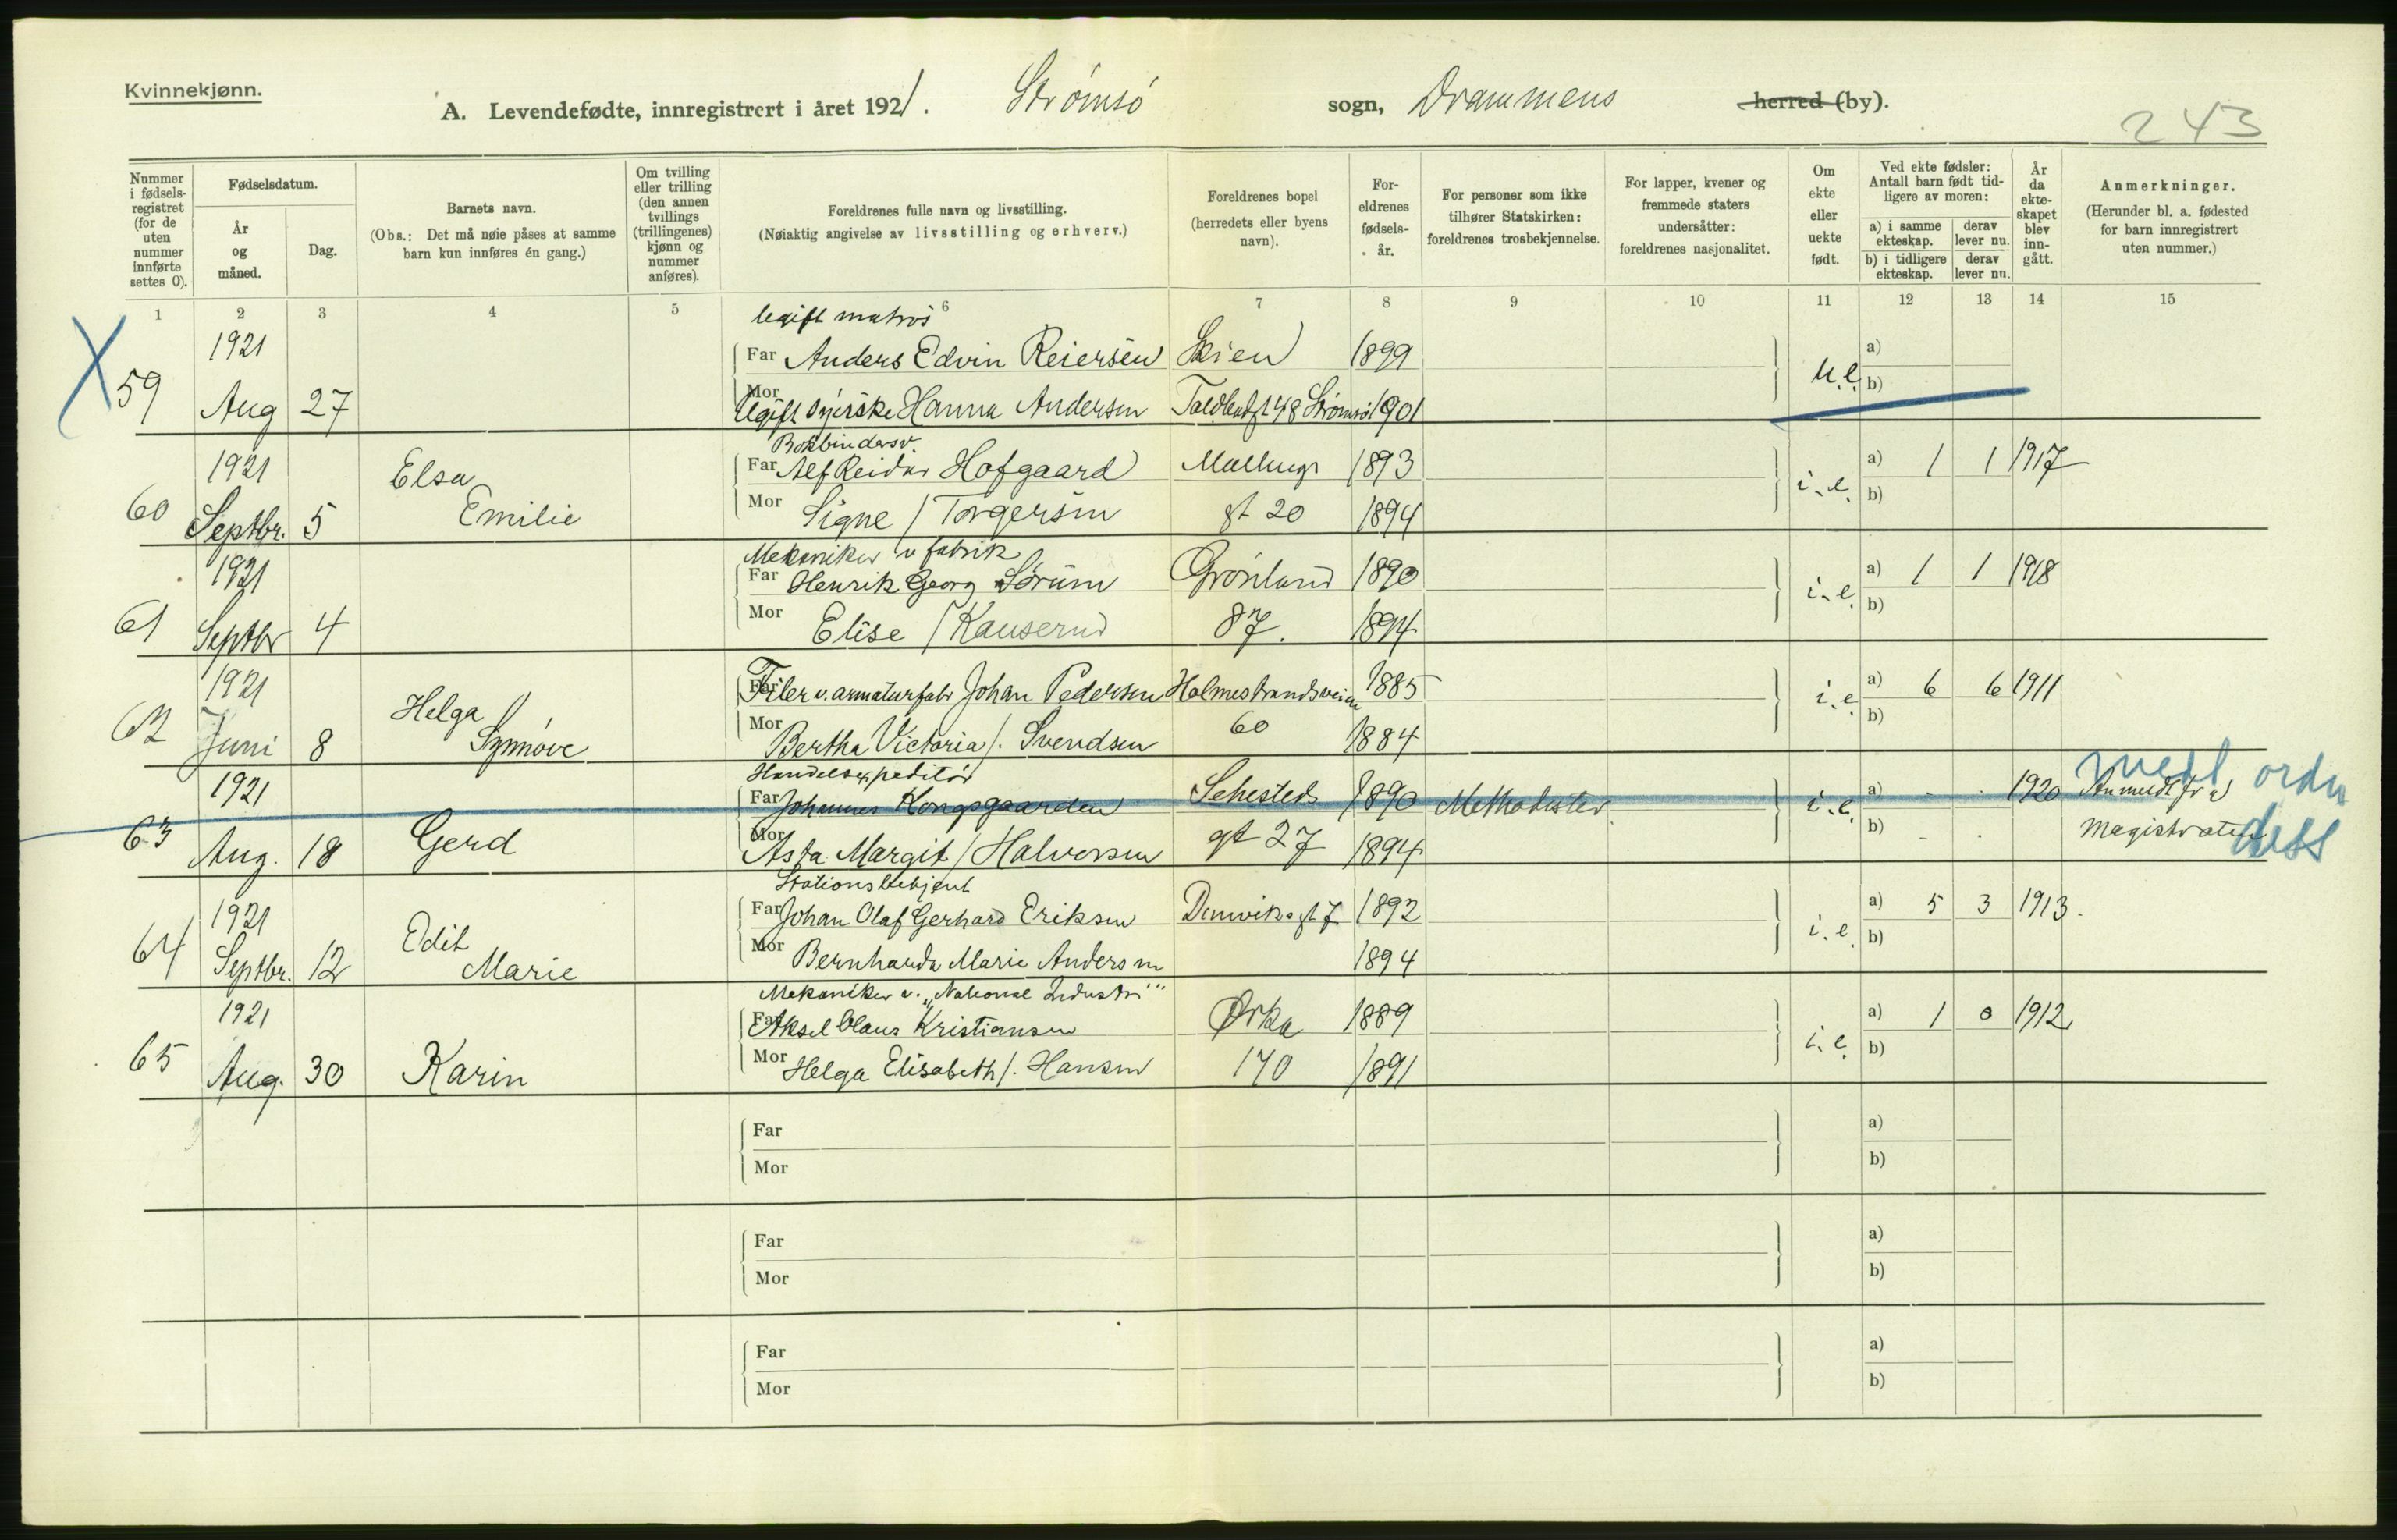 Kvinnekjønn.
A. Levendefødte, innregistrert i året 1921. Strømsø sogn, Drammens herred (by).
243
Nummer i fødsels-registret (for de uten nummer innførte settes 0).
Fødselsdatum.
År og måned.
Dag.
Barnets navn.
(Obs.: Det må nøie påses at samme barn kun innføres én gang.)
Om tvilling eller trilling (den annen tvillings (trillingenes) kjønn og nummer anføres).
Foreldrenes fulle navn og livsstilling.
(Nøiaktig angivelse av livsstilling og erhverv.)
Foreldrenes bopel (herredets eller byens navn).
For-eldrenes fødsels-år.
For personer som ikke tilhører Statskirken: foreldrenes trosbekjennelse.
For lapper, kvener og fremmede staters undersåtter: foreldrenes nasjonalitet.
Om ekte eller uekte født.
Ved ekte fødsler: Antall barn født tid-ligere av moren:
a) i samme ekteskap. derav lever nu.
b) i tidligere ekteskap. derav lever nu.
År da ekte-skapet blev inn-gått.
Anmerkninger.
(Herunder bl. a. fødested for barn innregistrert uten nummer.)
1 2 3 4 5 6 7 8 9 10 11 12 13 14 15
X
Ugift matros
1921 Far Anders Edvin Reiersen Skien 1899 a)
59 Aug 27 Mor Ugift syerske Hanna Andersen 48 Strømsø 1901 u.e. b)
Bokbindersv.
1921 Elsa Far Alf Reidar Hofgaard Mallings 1893 a) 1 1 1917
60 Septbr. 5 Emilie Mor Signe / Torgersen gt 20 1894 i.e. b)
Mekaniker v fabrik
1921 Far Henrik Georg Sørum Grønland 1890 a) 1 1 1918
61 Septbr 4 Mor Elise / Kauserud 87. 1894 i.e. b)
1921 Helga Far Filer v. armaturfabr Johan Pedersen Holmestrandsveien 1885 a) 6 6 1911
62 Juni 8 Synnøve Mor Bertha Victoria /. Svendsen 60 1884 i.e. b)
Handelsexpeditør
1921 Far Johannes Kongsgaarden Sehesteds 1890 Methodister i.e. a) - - 1920 Anmeldt fra
63 Aug. 18 Gerd Mor Asta Margit / Halvorsen gt 27 1894 b) - - Magistraten
Stationsbetjent
1921 Edit Far Johan Olaf Gerhard Eriksen gt 7 1892 a) 5 3 1913.
64 Septbr. 12 Marie Mor Bernharda Marie Andersen 1894 i.e. b)
Mekaniker v. "National Industri"
1921 Far Aksel Claus Kristiansen Ørka 1889 a) 1 0 1912
65 Aug. 30 Karin Mor Helga Elisabeth /. Hansen 170 1891 i.e. b)
Far a)
Mor b)
Far a)
Mor b)
Far a)
Mor b)